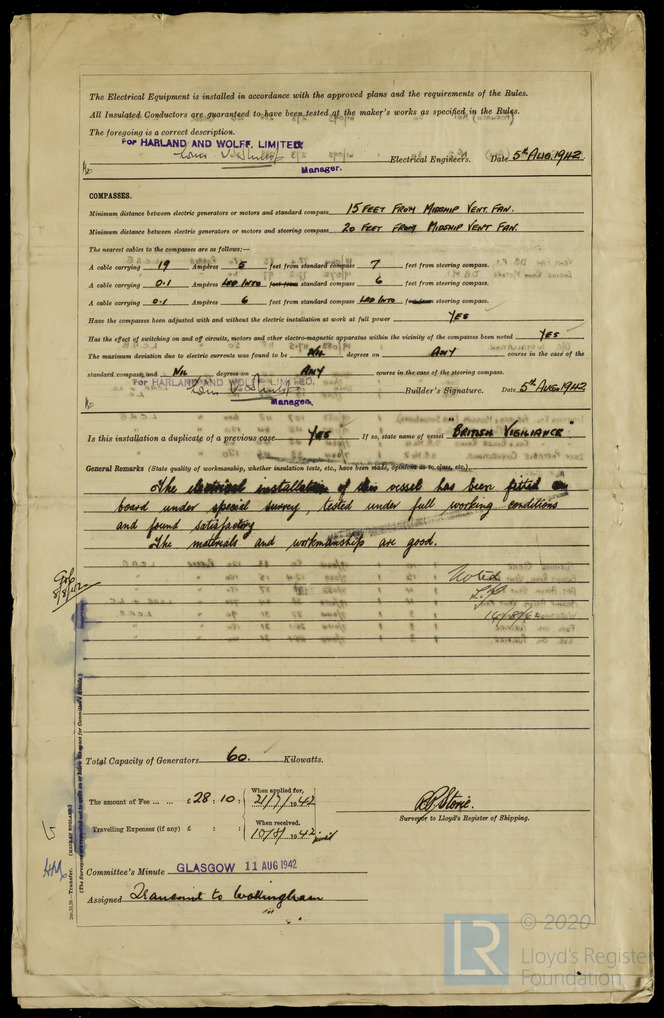 The Electrical Equipment is installed in accordance with the approved plans and the requirements of the Rules.
All Insulated Conductors are guaranteed to have been tested at the maker's works as specified in the Rules.
The foregoing is a correct description.
FOR HARLAND AND WOLFF, LIMITED.
Electrical Engineers. Date 5th Aug. 1942
Manager.
COMPASSES.
Minimum distance between electric generators or motors and standard compass 15 FEET FROM MIDSHIP VENT. FAN.
Minimum distance between electric generators or motors and steering compass 20 FEET FROM MIDSHIP VENT FAN.
The nearest cables to the compasses are as follows:—
A cable carrying 19 Ampères 5 feet from standard compass 7 feet from steering compass.
A cable carrying 0.1 Ampères LED INTO feet from standard compass 6 feet from steering compass.
A cable carrying 0.1 Ampères 6 feet from standard compass LED INTO feet from steering compass.
Have the compasses been adjusted with and without the electric installation at work at full power YES
Has the effect of switching on and off circuits, motors and other electro-magnetic apparatus within the vicinity of the compasses been noted YES
The maximum deviation due to electric currents was found to be NIL degrees on ANY course in the case of the
standard compass and NIL degrees on ANY course in the case of the steering compass.
FOR HARLAND AND WOLFF, LIMITED.
Builder's Signature. Date 5th Aug. 1942
Manager.
Is this installation a duplicate of a previous case YES If so, state name of vessel "BRITISH VIGILANCE"
General Remarks (State quality of workmanship, whether insulation tests, etc., have been made, opinions as to class, etc.)
The electrical installation of this vessel has been fitted on
board under special survey, tested under full working conditions
and found satisfactory
The materials and workmanship are good.
Noted
8/8/42
14/8/42
Total Capacity of Generators 60. Kilowatts.
The amount of Fee ... ... £ 28 : 10 : When applied for, 21/7/1942
Travelling Expenses (if any) £ : : When received. 10/8/1942
R.R. Storie.
Surveyor to Lloyd's Register of Shipping.
Committee's Minute GLASGOW 11 AUG 1942
Assigned Transmit to Wokingham
© 2020
LR
Lloyd's Register
Foundation